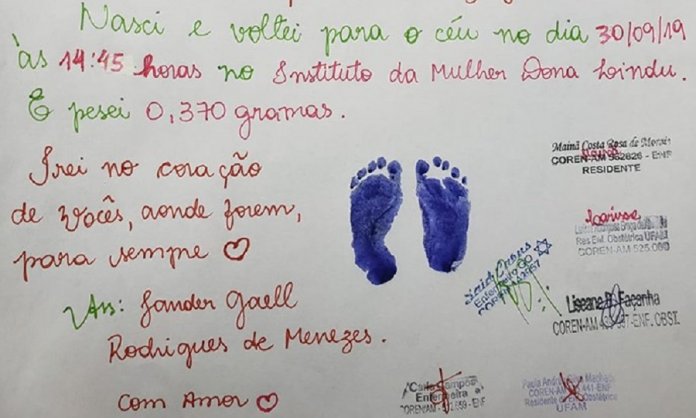 Nasci e voltei para o céu no dia 30/09/19
às 14:45 horas no Instituto da Mulher Dona Lindu.
E pesei 0,370 gramas.
Irei no coração
de vocês, aonde forem,
para sempre ♡
Ass: Jander Gaell
Rodrigues de Menezes.
Com Amor ♡
Mainã Costa Rosa de Morais
COREN-AM - ENF
RESIDENTE
Larisse
Res Enf. Obstétrica UFAM
COREN-AM 525.080
Enfermeiro
Liseane B. Façanha
COREN-AM -ENF. OBST.
Campos
Enfermeira
COREN-AM -ENF
Paula Silva Machado
COREN-AM 441-ENF
Residente Obstétrica
UFAM